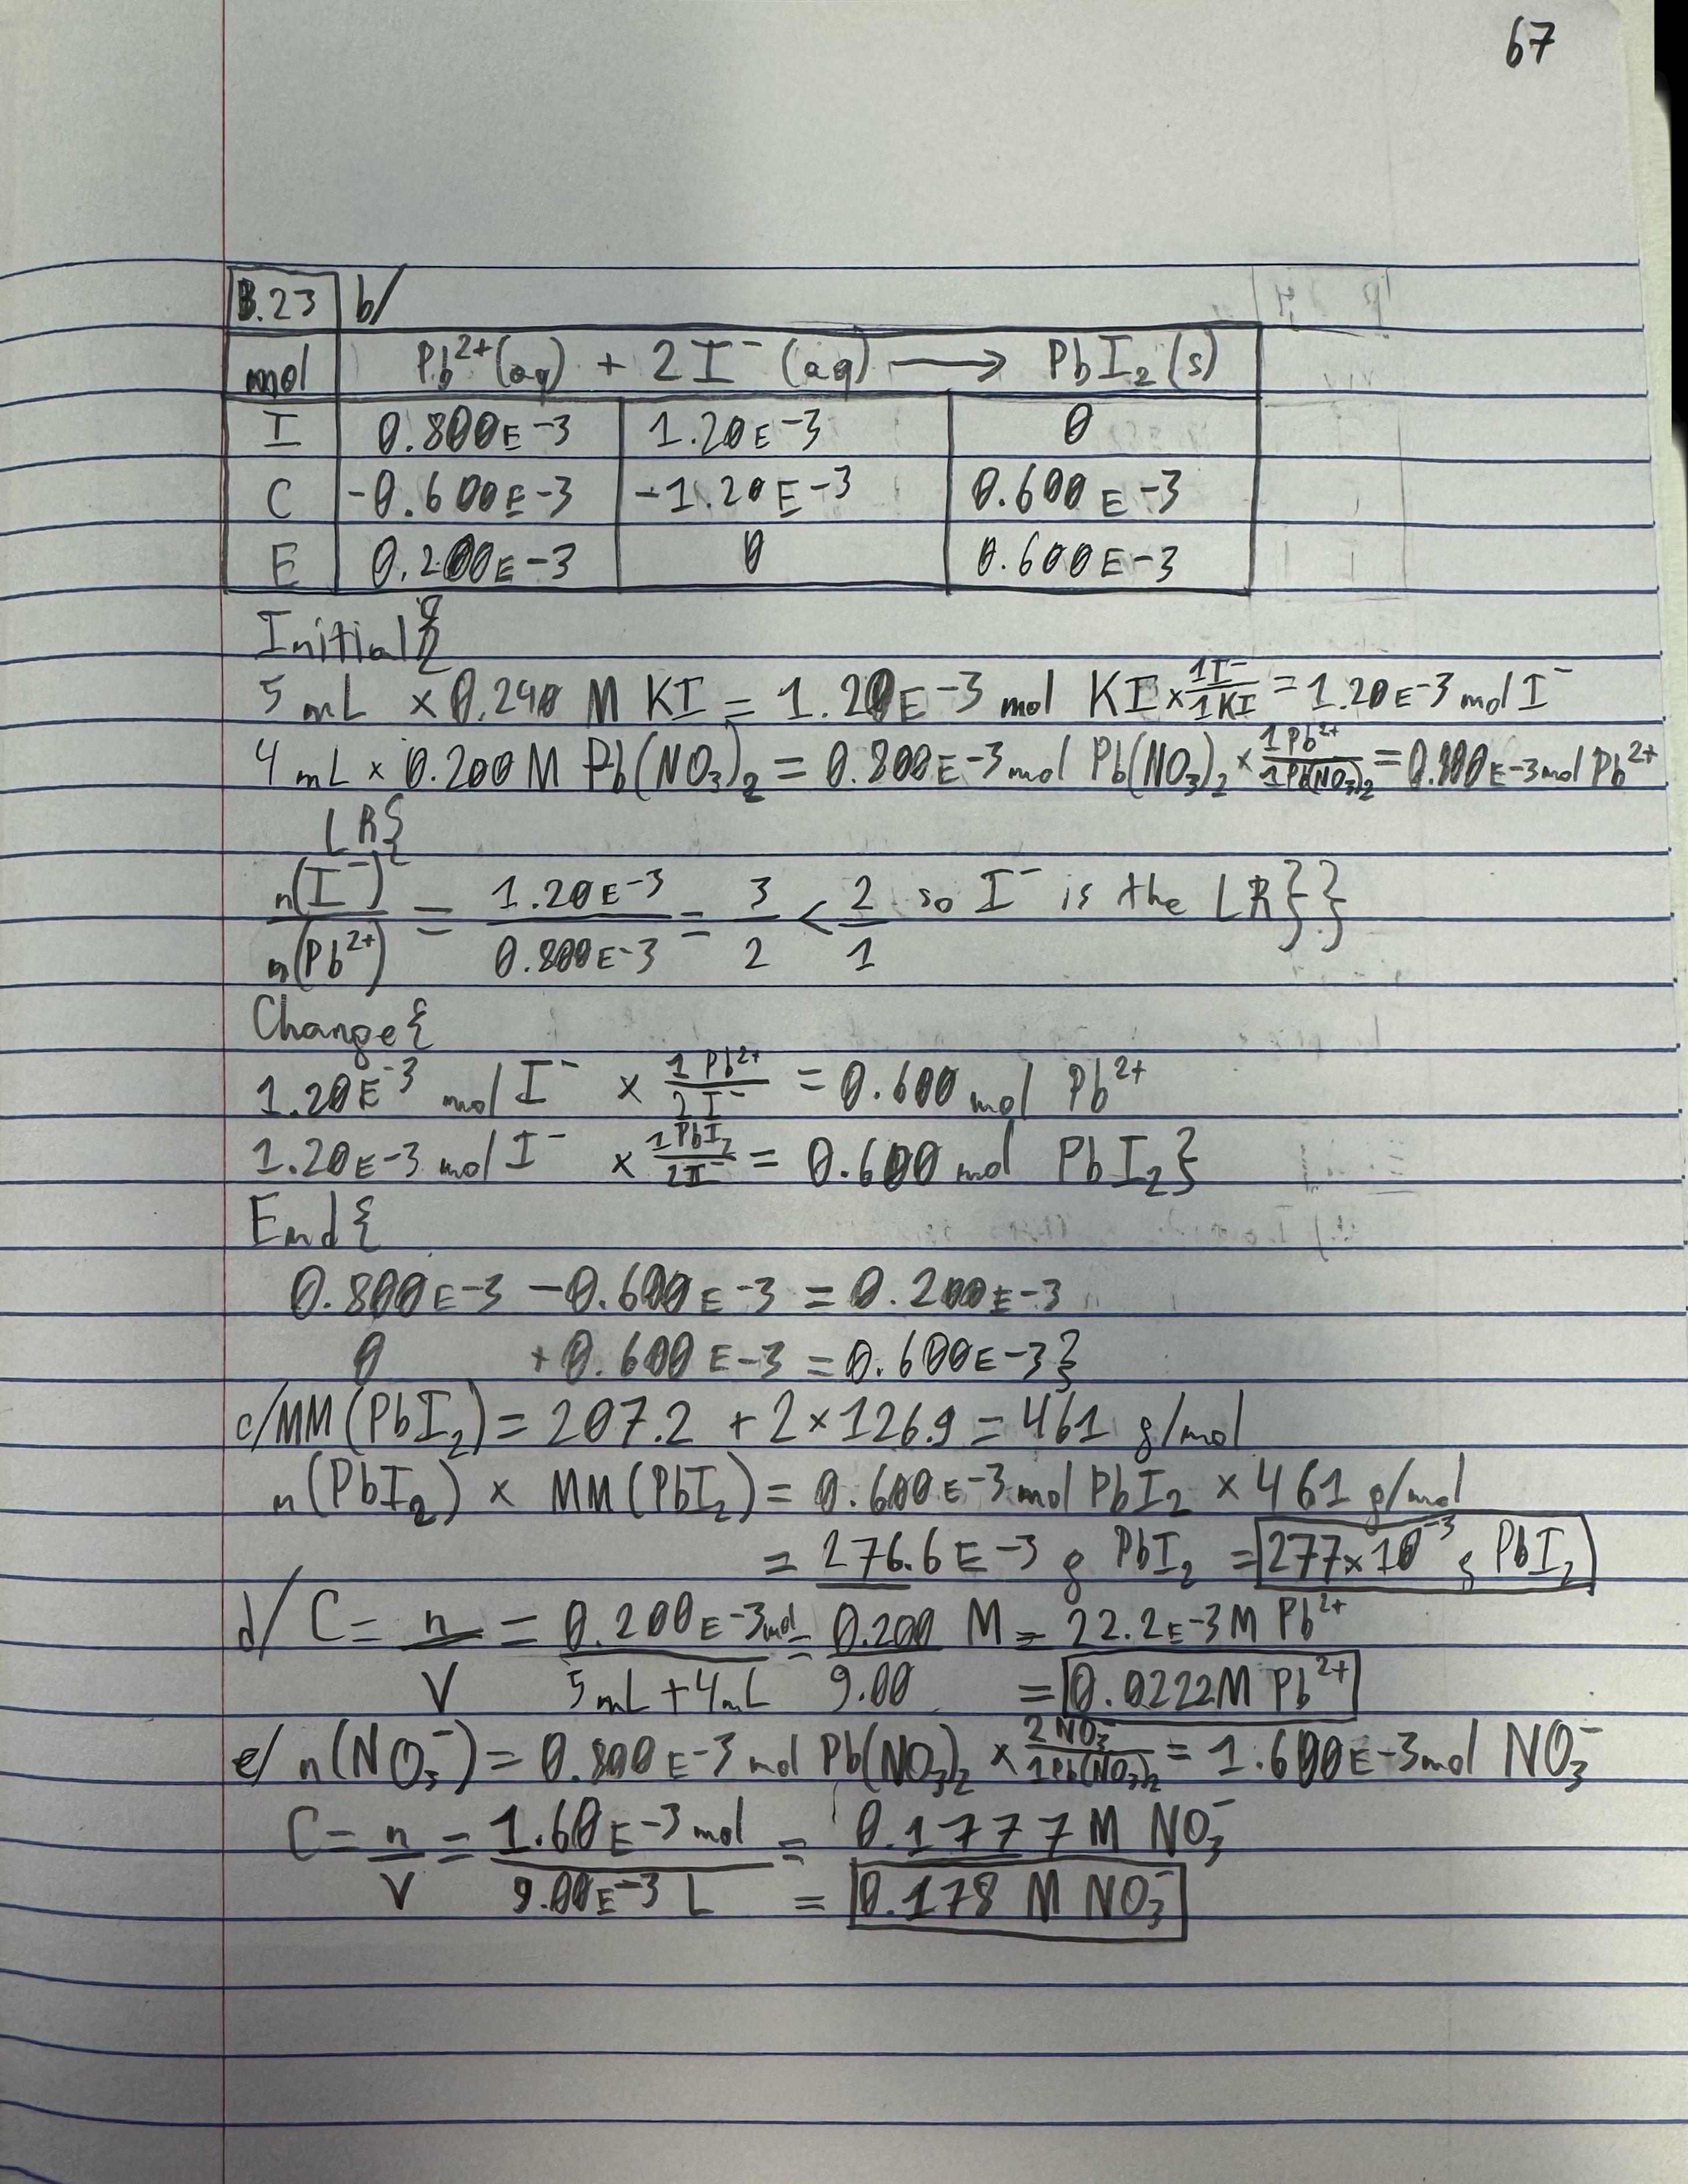 67
B.23 b/
mol Pb²⁺(aq) + 2I⁻(aq) ⟶ PbI₂(s)
I 0.800E-3 1.20E-3 0
C -0.600E-3 -1.20E-3 0.600E-3
E 0.200E-3 0 0.600E-3
Initial{
5 mL × 0.240 M KI = 1.20E-3 mol KI × 1I⁻/1KI = 1.20E-3 mol I⁻
4 mL × 0.200 M Pb(NO₃)₂ = 0.800E-3 mol Pb(NO₃)₂ × 1Pb²⁺/1Pb(NO₃)₂ = 0.800E-3 mol Pb²⁺
LR{
n(I⁻)/n(Pb²⁺) = 1.20E-3/0.800E-3 = 3/2 < 2/1 so I⁻ is the LR}}
Change{
1.20E-3 mol I⁻ × 1Pb²⁺/2I⁻ = 0.600 mol Pb²⁺
1.20E-3 mol I⁻ × 1PbI₂/2I⁻ = 0.600 mol PbI₂}
End{
0.800E-3 - 0.600E-3 = 0.200E-3
0 + 0.600E-3 = 0.600E-3}
c/ MM(PbI₂) = 207.2 + 2×126.9 = 461 g/mol
n(PbI₂) × MM(PbI₂) = 0.600E-3 mol PbI₂ × 461 g/mol
= 276.6E-3 g PbI₂ = 277×10⁻³ g PbI₂
d/ C = n/V = 0.200E-3 mol/5mL+4mL = 0.200/9.00 M = 22.2E-3 M Pb²⁺
= 0.0222 M Pb²⁺
e/ n(NO₃⁻) = 0.800E-3 mol Pb(NO₃)₂ × 2NO₃⁻/1Pb(NO₃)₂ = 1.600E-3 mol NO₃⁻
C = n/V = 1.60E-3 mol/9.00E-3 L = 0.1777 M NO₃⁻
= 0.178 M NO₃⁻